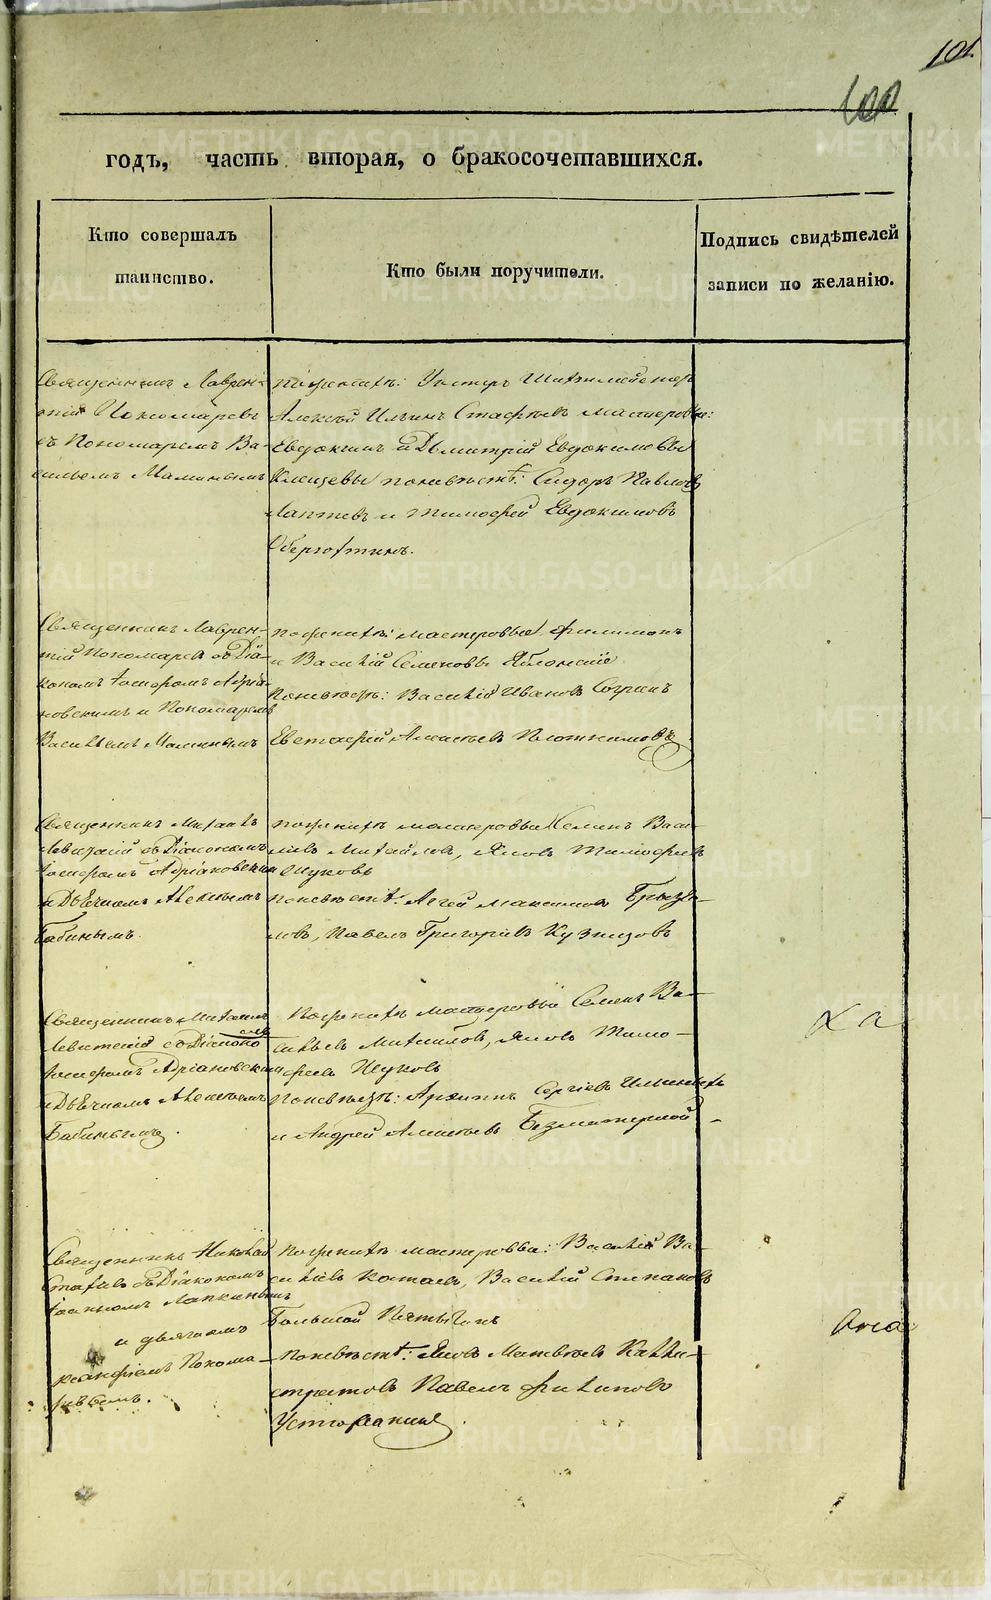 101.
100
годъ, часть вторая, о бракосочетавшихся.
Кто совершалъ
таинство.
Кто были поручители.
Подпись свидѣтелей
записи по желанію.
Священникъ Лаврен-
тій Пономаревъ
съ Пономаремъ Ва-
сильемъ Маминымъ
по женихѣ: Унтеръ Шихтмейстеръ
Алексѣй Ильинъ Стафѣевъ мастеровые:
Евдокимъ и Дьмитрій Евдокимовы
Клещевы по невѣстѣ: Сидоръ Павловъ
Лаптевъ и Тимофей Евдокимовъ
Священникъ Лаврен-
тій Пономаревъ съ Діа-
кономъ Іосифомъ Адріа-
новскимъ и Пономаремъ
Васильемъ Маминымъ
по женихѣ: мастеровые Филимонъ
и Василій Семеновы Яблонскіе
по невѣстѣ: Василій Ивановъ Согринъ
Евстафій Алексѣевъ Плотниковъ
Священникъ Михаилъ
Левитскій съ Діакономъ
Іосифомъ Адріановскимъ
и Дьячкомъ Алексѣемъ
Бабинымъ.
по женихѣ мастеровые Семенъ Васи-
льевъ Михайловъ, Яковъ Тимофеевъ
Шуковъ
по невѣстѣ: Агей Максимовъ Брызга-
ловъ, Павелъ Григорьевъ Кузнецовъ
Священникъ Михаилъ
Левитскій съ Діаконо
мъ
Іосифомъ Адріановскимъ
и Дьячкомъ Алексѣемъ
Бабинымъ.
По женихѣ мастеровые Семенъ Ва-
сильевъ Михайловъ, Яковъ Тимо-
феевъ Шуковъ
по невѣстѣ: Архипъ Сергѣевъ
и Андрей Алексѣевъ Безматерной
Священникъ Николай
Стахѣевъ съ Діакономъ
Іоанномъ Лапкинымъ
и дьячкомъ
Понома-
ревымъ.
По женихѣ мастеровые: Василій Ва-
сильевъ Катаевъ, Василій Степановъ
Большой Пятыгинъ
по невѣстѣ: Яковъ Матвѣевъ Калли-
стратовъ Павелъ Филиповъ
Устюжанинъ.
METRIKI.GASO-URAL.RU